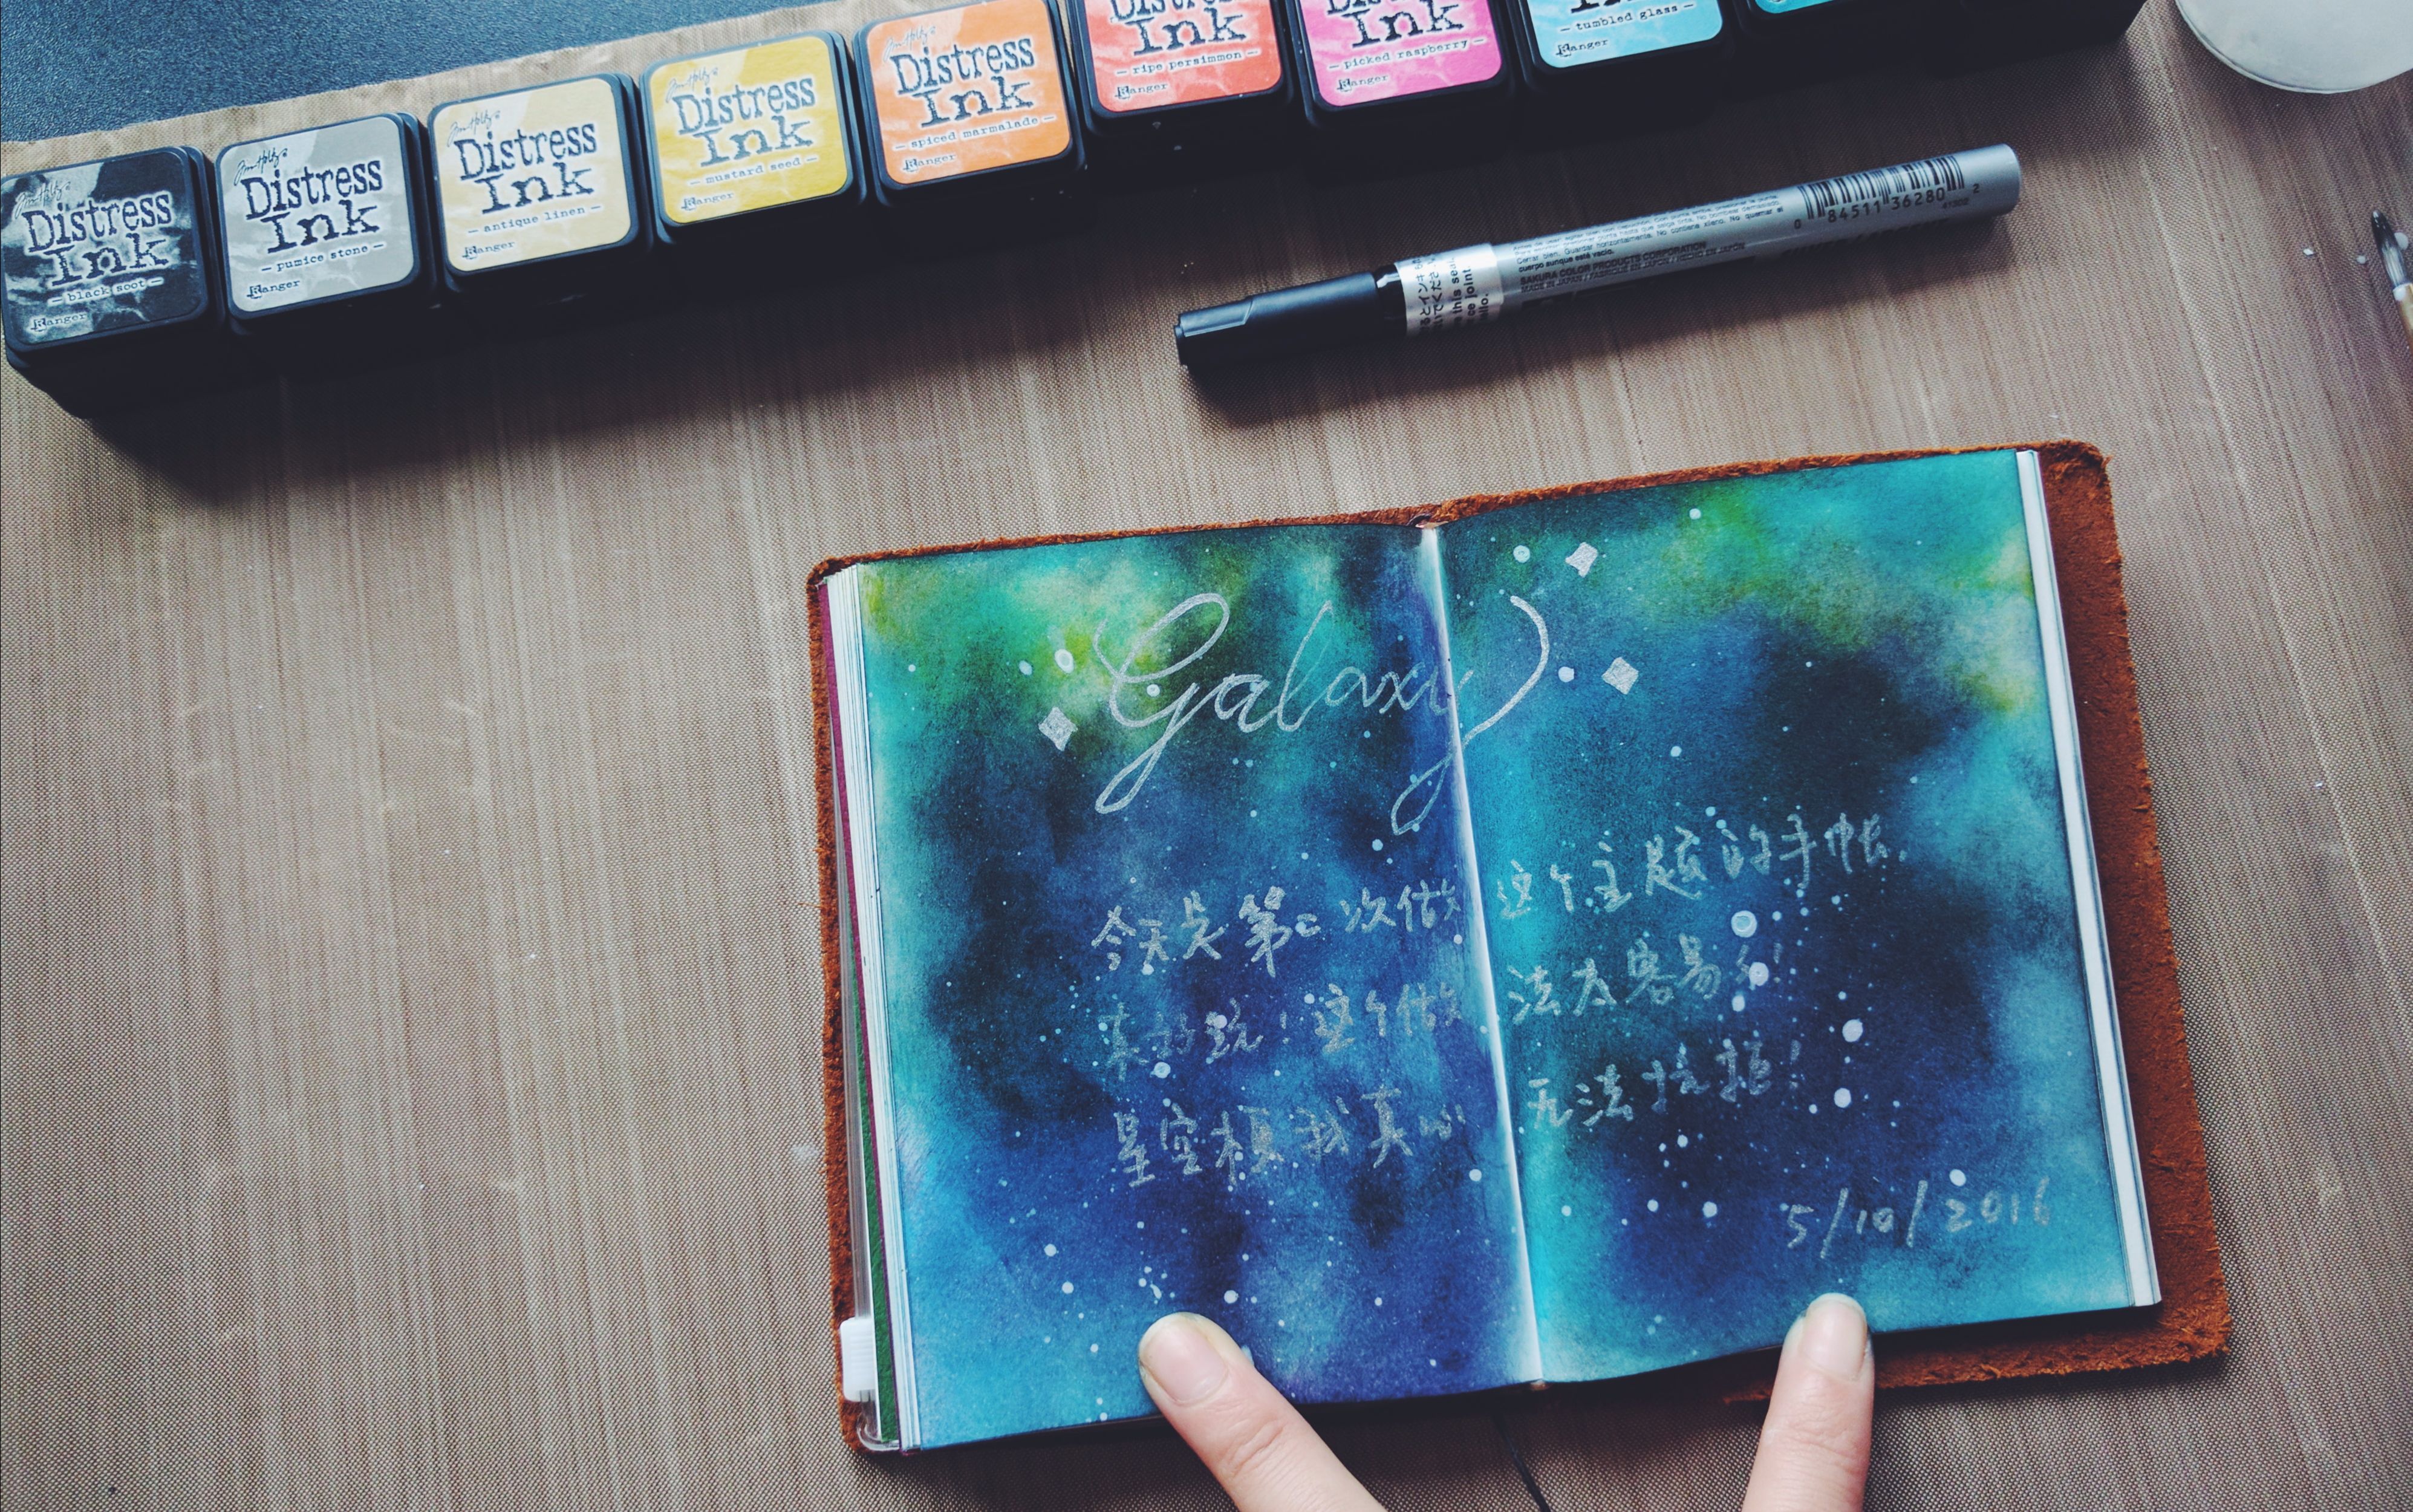 Distress Ink
black soot
Ranger
Tim Holtz
Distress Ink
pumice stone
Ranger
Tim Holtz
Distress Ink
antique linen
Ranger
Tim Holtz
Distress Ink
mustard seed
Ranger
Tim Holtz
Distress Ink
spiced marmalade
Ranger
Distress
Ink
ripe persimmon
Ranger
Ink
picked raspberry
Ranger
tumbled glass
Ranger
0 84511 36280 2
SAKURA COLOR PRODUCTS CORPORATION
MADE IN JAPAN / FABRIQUE EN JAPON / HECHO EN JAPÓN
Galaxy
今天是第二次做这个主题的手帐,
来的玩!这个做法太容易了!
星空本真我真心无法抗拒!
5/10/2016